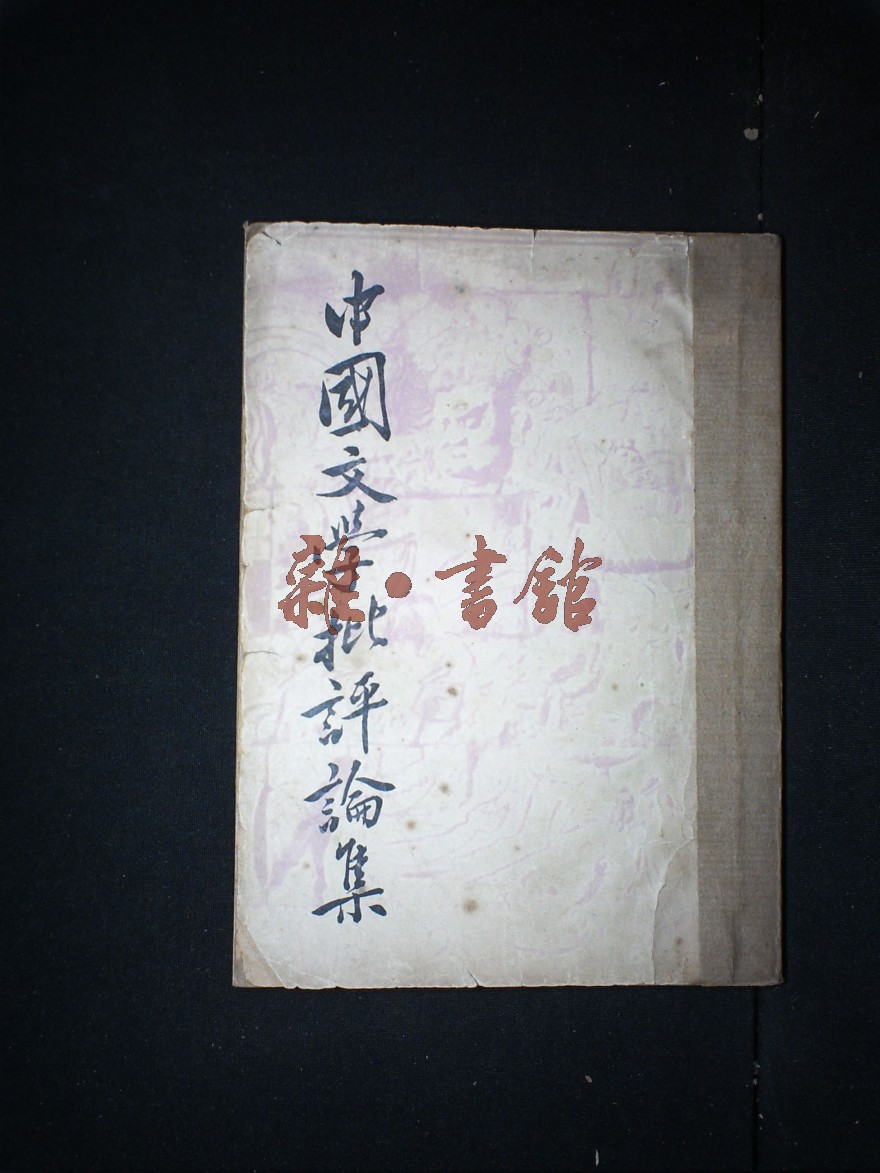 中國文學批評論集
雜·書館